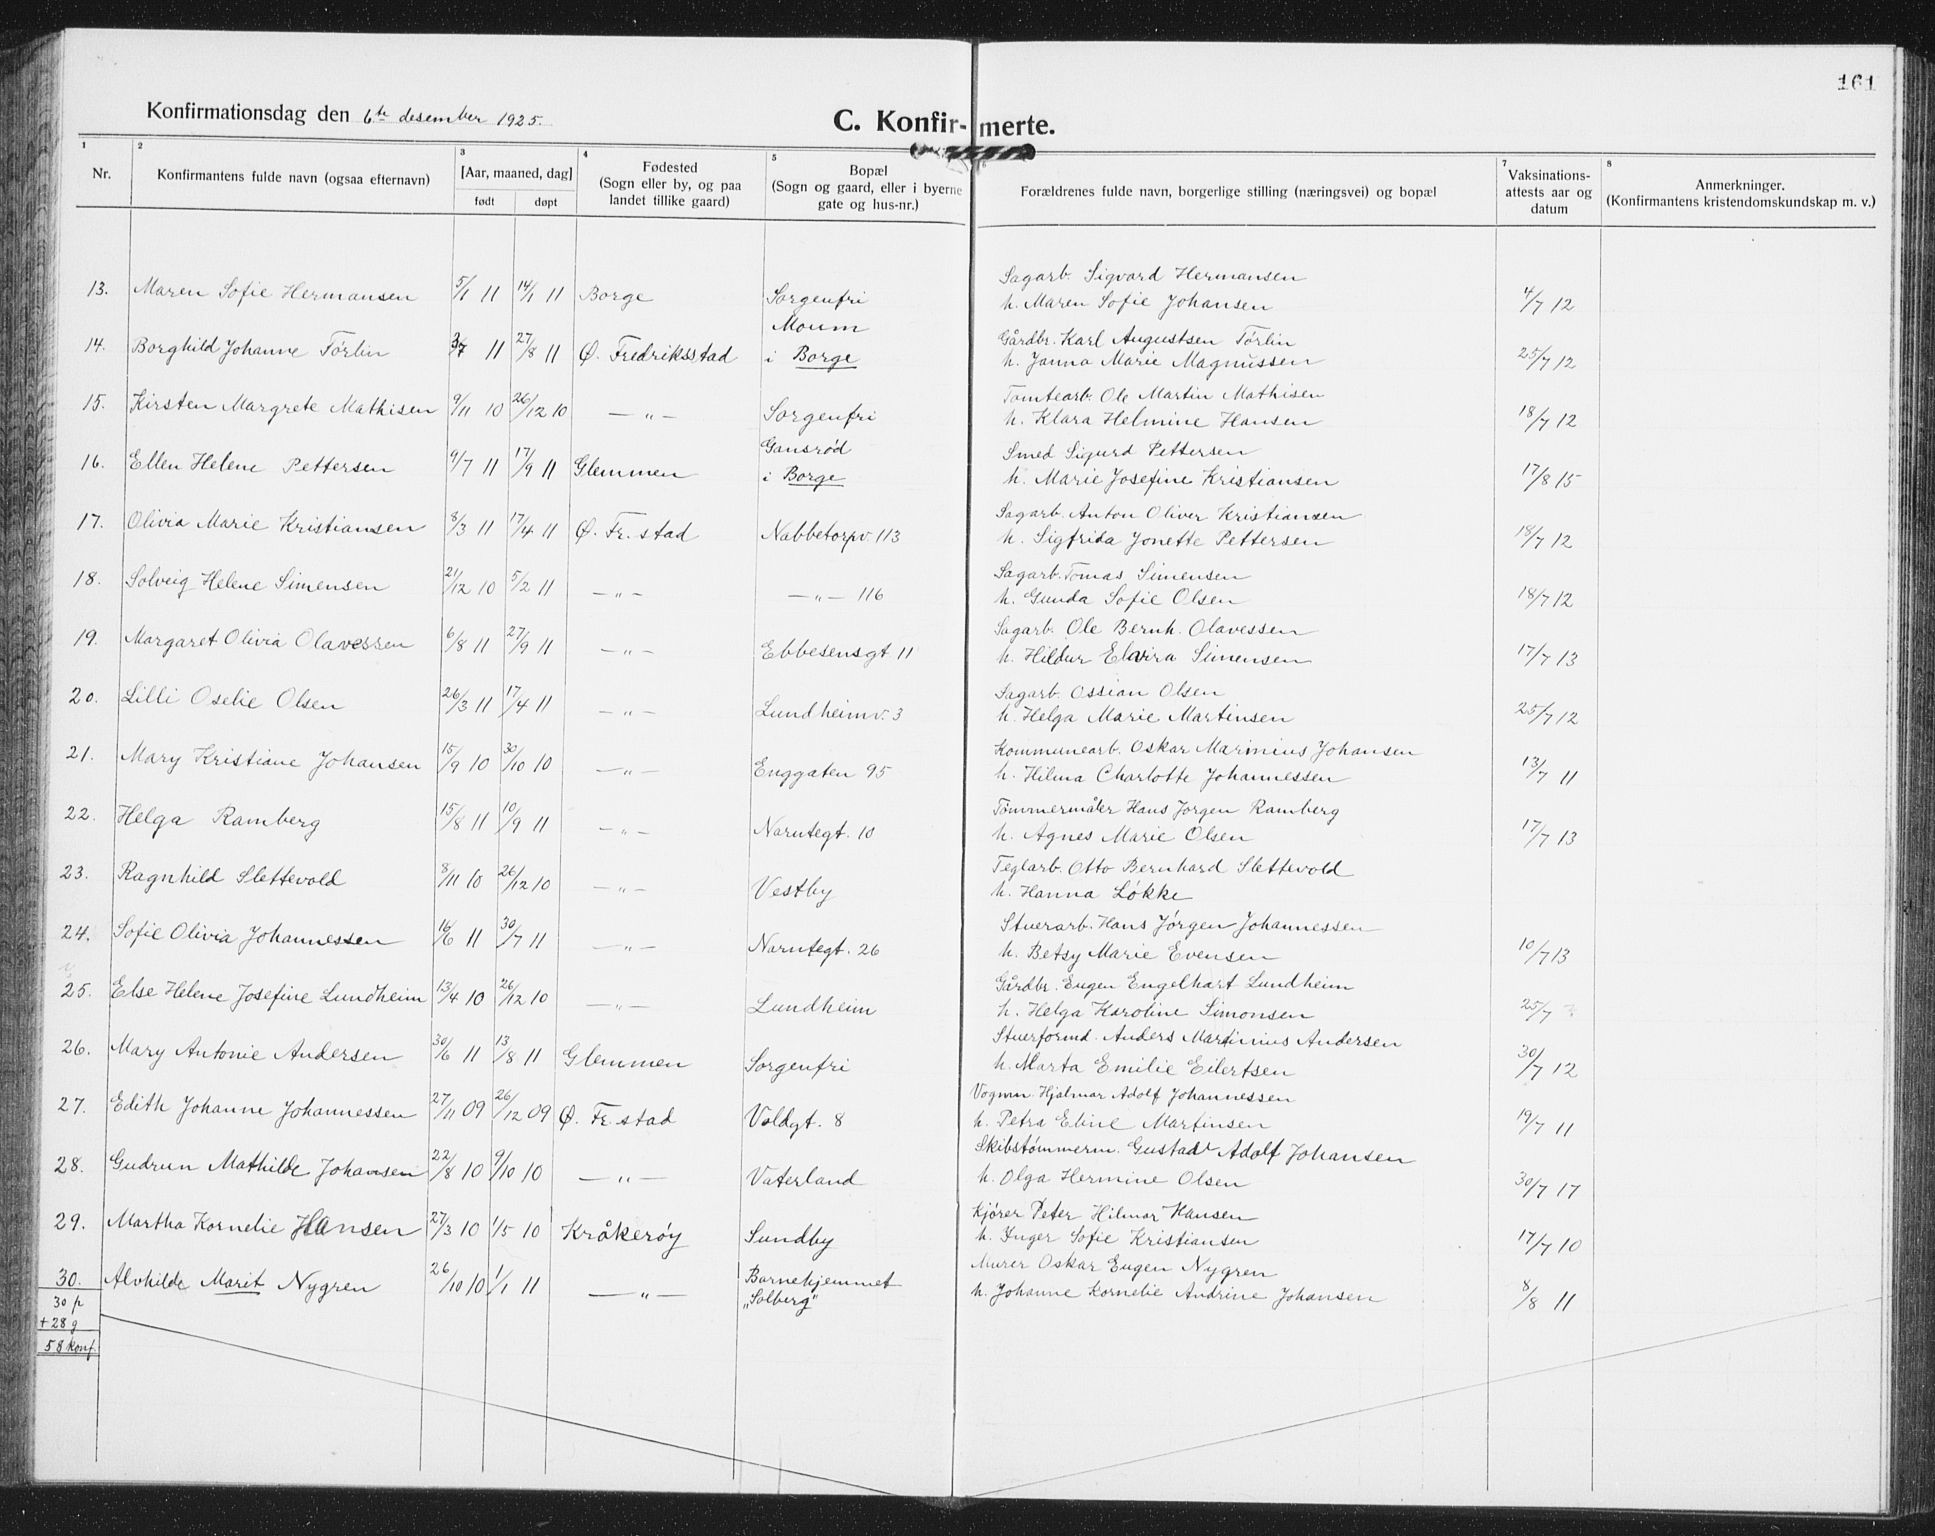 161
Konfirmationsdag den 6te desember 1925.
C. Konfir-merte.
1 2 3 4 5 6 7 8
Nr. Konfirmantens fulde navn (ogsaa efternavn) [Aar, maaned, dag] født døpt Fødested (Sogn eller by, og paa landet tillike gaard) Bopæl (Sogn og gaard, eller i byerne gate og hus-nr.) Forældrenes fulde navn, borgerlige stilling (næringsvei) og bopæl Vaksinations-attests aar og datum Anmerkninger. (Konfirmantens kristendomskundskap m. v.)
13. Maren Sofie Hermansen 5/1 11 14/1 11 Borge Sorgenfri Sagarb. Sigvard Hermansen
h. Maren Sofie Johansen 4/7 12
14. Borghild Johanne Törlin 11 27/8 11 Ø. Fredriksstad Moum i Borge Gårdbr. Karl Augustsen Törlin
h. Janna Marie Magnussen 25/7 12
15. Kirsten Margrete Mathisen 9/11 10 26/12 10 —"— Sorgenfri Tomtearb. Ole Martin Mathisen
h. Klara Helmine Hansen 18/7 12
16. Ellen Helene Pettersen 9/7 11 17/9 11 Glemmen Gansrød i Borge Smed Sigurd Pettersen
h. Marie Josefine Kristiansen 17/8 15
17. Olivia Marie Kristiansen 8/3 11 17/4 11 Ø. Fr.stad Nabbetorpv. 113 Sagarb. Anton Oliver Kristiansen
h. Sigfrida Jonette Pettersen 18/7 12
18. Solveig Helene Simensen 21/12 10 5/2 11 —"— —"— 116 Sagarb. Tomas Simensen
h. Gunda Sofie Olsen 18/7 12
19. Margaret Olivia Olavessen 6/8 11 27/9 11 —"— Ebbesensgt 11 Sagarb. Ole Bernh. Olavessen
h. Hildur Elvira Simensen 17/7 13
20. Lilli Oselie Olsen 26/3 11 17/4 11 —"— Lundheimv. 3 Sagarb. Ossian Olsen
h. Helga Marie Martinsen 25/7 12
21. Mary Kristiane Johansen 15/9 10 30/10 10 —"— Enggaten 95 Kommunearb. Oskar Marinius Johansen
h. Hilma Charlotte Johannessen 13/7 11
22. Helga Ramberg 15/8 11 10/9 11 —"— Narntegt. 10 Tømmermåler Hans Jørgen Ramberg
h. Agnes Marie Olsen 17/7 13
23. Ragnhild Slettevold 8/11 10 26/12 10 —"— Vestby Teglarb. Otto Bernhard Slettevold
h. Hanna Løkke
24. Sofie Olivia Johannessen 16/6 11 30/7 11 —"— Narntegt. 26 Stuerarb. Hans Jørgen Johannessen
h. Betsy Marie Evensen 10/7 13
25. Else Helene Josefine Lundheim 13/4 10 26/12 10 —"— Lundheim Gårdbr. Eugen Engelhart Lundheim
h. Helga Karoline Simonsen 25/7
26. Mary Antonie Andersen 30/6 11 13/8 11 Glemmen Sorgenfri Stuerformd. Anders Martinius Andersen
h. Marta Emilie Eilertsen 30/7 12
27. Edith Johanne Johannessen 27/11 09 26/12 09 Ø. Fr.stad Voldgt. 8 Vognm. Hjalmar Adolf Johannessen
h. Petra Eline Martinsen 19/7 11
28. Gudrun Mathilde Johansen 22/8 10 9/10 10 —"— Vaterland Skibstømmerm. Gustav Adolf Johansen
h. Olga Hermine Olsen 30/7 17
29. Martha Kornelie Hansen 27/3 10 1/5 10 Kråkerøy Sundby Kjører Peter Hilmar Hansen
h. Inger Sofie Kristiansen 17/7 10
30. Alvhilde Marit Nygren 26/10 10 1/1 11 —"— Barnehjemmet „Solberg" Murer Oskar Eugen Nygren
h. Johanne Kornelie Andrine Johansen 8/8 11
30 p
+ 28 g
58 konf.